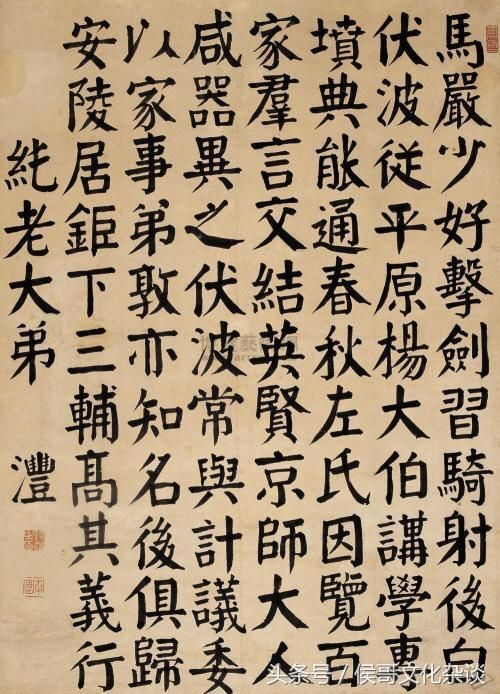 馬嚴少好擊劍習騎射後白
伏波從平原楊大伯講學專
墳典能通春秋左氏因覽百
家羣言交結英賢京師大人
咸器異之伏波常與計議委
以家事弟敦亦知名後俱歸
安陵居鉅下三輔髙其義行
純老大弟 灃
头条号 / 侯哥文化杂谈